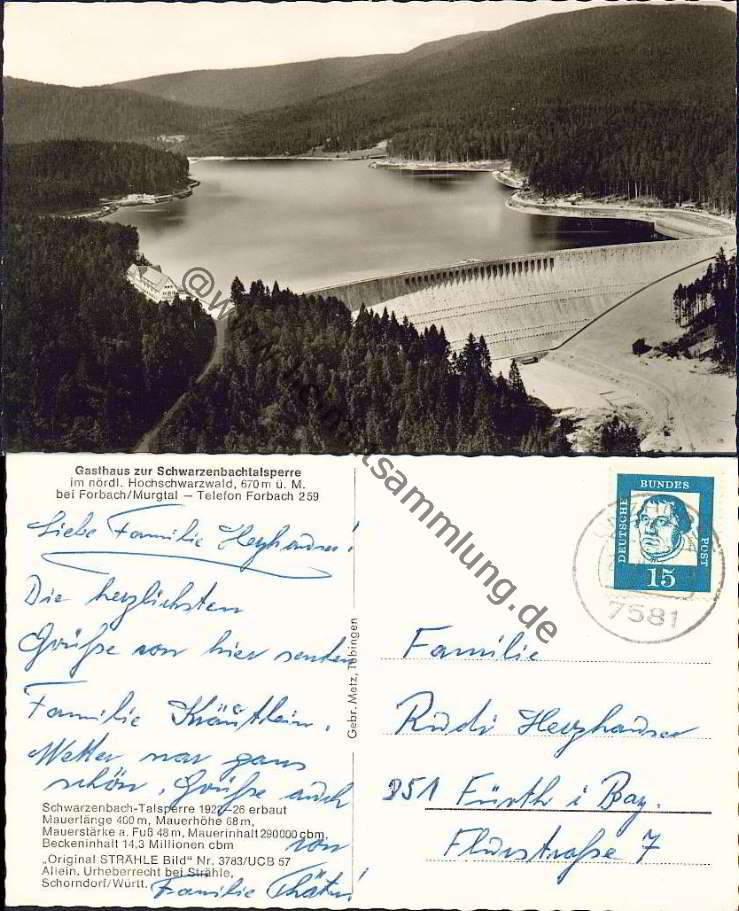 @www.Ansichtskartensammlung.de
Gasthaus zur Schwarzenbachtalsperre
im nördl. Hochschwarzwald, 670 m ü. M.
bei Forbach/Murgtal – Telefon Forbach 259
Liebe Familie Herzhauser!
Die herzlichsten
Grüße von hier senden
Familie Kräutlein.
Wetter war ganz
schön. Grüße auch
von
Familie
Schwarzenbach-Talsperre 1922–26 erbaut
Mauerlänge 400 m, Mauerhöhe 68 m,
Mauerstärke a. Fuß 48 m, Mauerinhalt 290000 cbm,
Beckeninhalt 14,3 Millionen cbm
„Original STRÄHLE Bild" Nr. 3783/UCB 57
Allein. Urheberrecht bei Strähle,
Schorndorf/Württ.
Gebr. Metz, Tübingen
DEUTSCHE
BUNDES
POST
15
7581
Familie
Rudi Herzhauser
851 Fürth i Bay.
Flurstraße 7